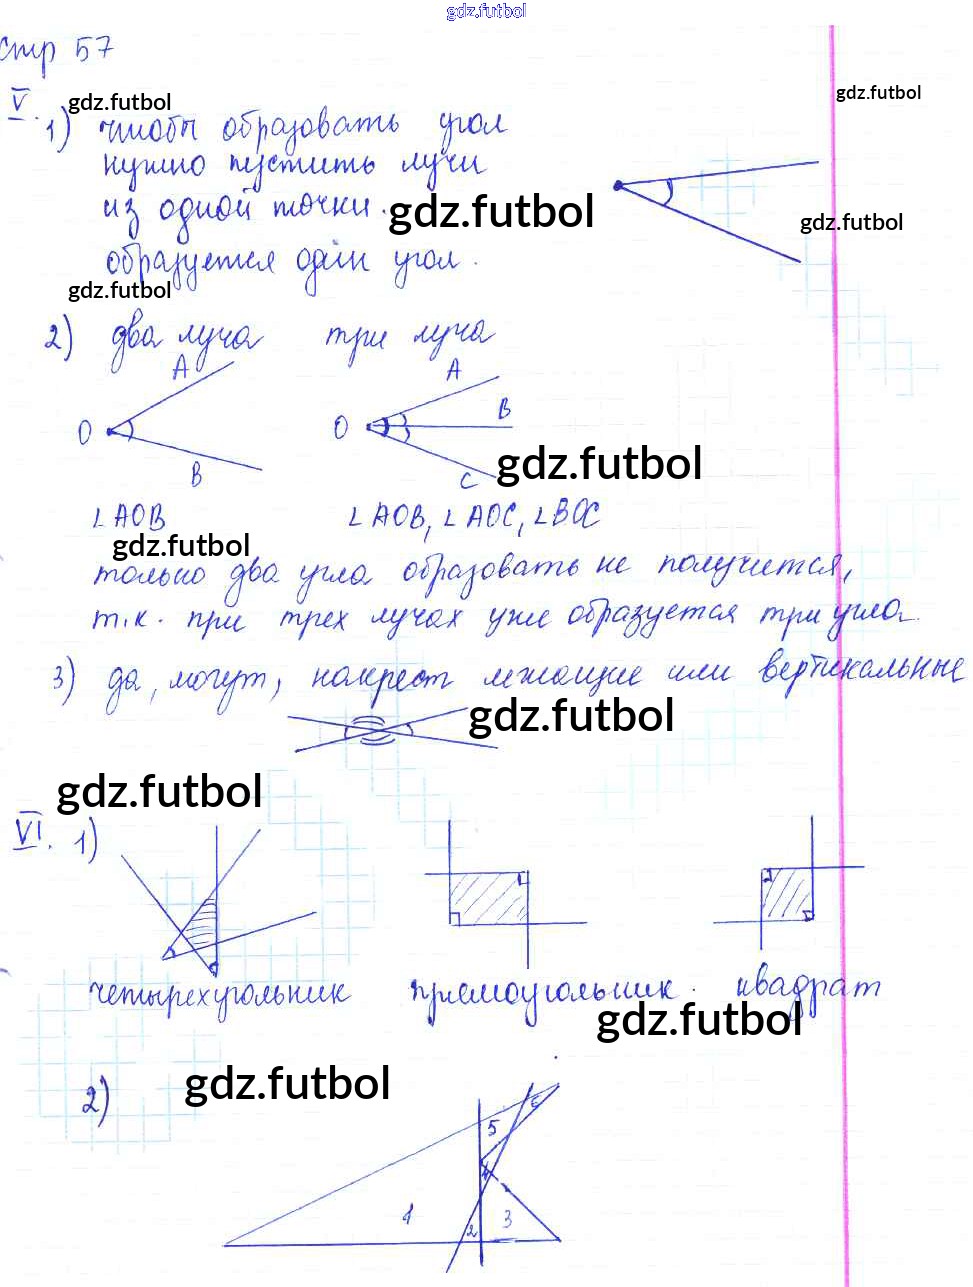 gdz.futbol
стр 57
V. 1) чтобы образовать угол
gdz.futbol
gdz.futbol
нужно пустить лучи
из одной точки.
gdz.futbol
gdz.futbol
образуется один угол.
gdz.futbol
2) два луча три луча
A A
O B O B
C
gdz.futbol
∠AOB ∠AOB, ∠AOC, ∠BOC
gdz.futbol
только два угла образовать не получится,
т.к. при трех лучах уже образуется три угла.
3) да, могут, накрест лежащие или вертикальные
gdz.futbol
gdz.futbol
VI. 1)
четырехугольник прямоугольник. квадрат
gdz.futbol
gdz.futbol
2)
5
4
1 2 3